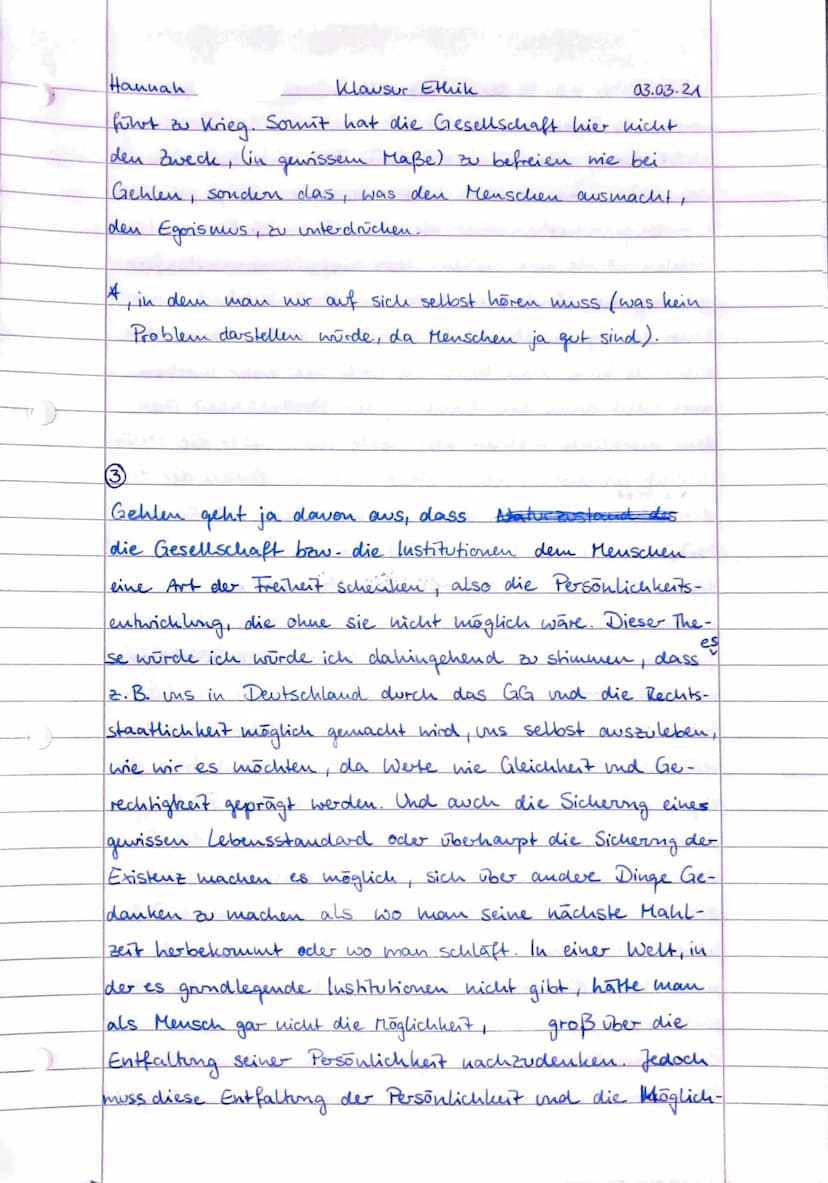 Hannah Klausur Ethik 03.03.21
führt zu Krieg. Somit hat die Gesellschaft hier nicht
den Zweck, (in gewissem Maße) zu befreien wie bei
Gehlen, sondern das, was den Menschen ausmacht,
den Egoismus, zu unterdrücken.
*, in dem man nur auf sich selbst hören muss (was kein
Problem darstellen würde, da Menschen ja gut sind).
③
Gehlen geht ja davon aus, dass Naturzustand des
die Gesellschaft bzw. die Institutionen dem Menschen
eine Art der Freiheit schenken, also die Persönlichkeits-
entwicklung, die ohne sie nicht möglich wäre. Dieser The-
se würde ich würde ich dahingehend zu stimmen, dass es
z.B. uns in Deutschland durch das GG und die Rechts-
staatlichkeit möglich gemacht wird, uns selbst auszuleben,
wie wir es möchten, da Werte wie Gleichheit und Ge-
rechtigkeit geprägt werden. Und auch die Sicherung eines
gewissen Lebensstandard oder überhaupt die Sicherung der
Existenz machen es möglich, sich über andere Dinge Ge-
danken zu machen als wo man seine nächste Mahl-
zeit herbekommt oder wo man schläft. In einer Welt, in
der es grundlegende Institutionen nicht gibt, hätte man
als Mensch gar nicht die Möglichkeit, groß über die
Entfaltung seiner Persönlichkeit nachzudenken. Jedoch
muss diese Entfaltung der Persönlichkeit und die Möglich-